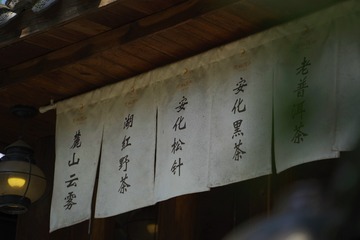 麓山云雾
湘红野茶
安化松针
安化黑茶
老普洱茶